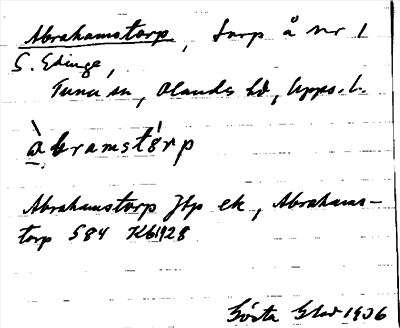 Abrahamstorp, torp å nr 1
S. Edinge,
Tuna sn, Olands hd, Upps. l.
àbramstórp
Abrahamstorp Jbp ek, Abrahams-
torp S84 Kbl 1928
Gösta 1906